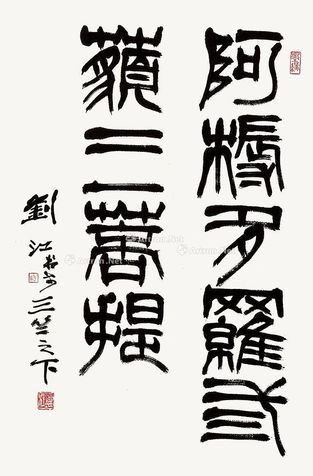 阿耨多羅弎
藐三菩提
劉江書於三竺之下
Artron.Net